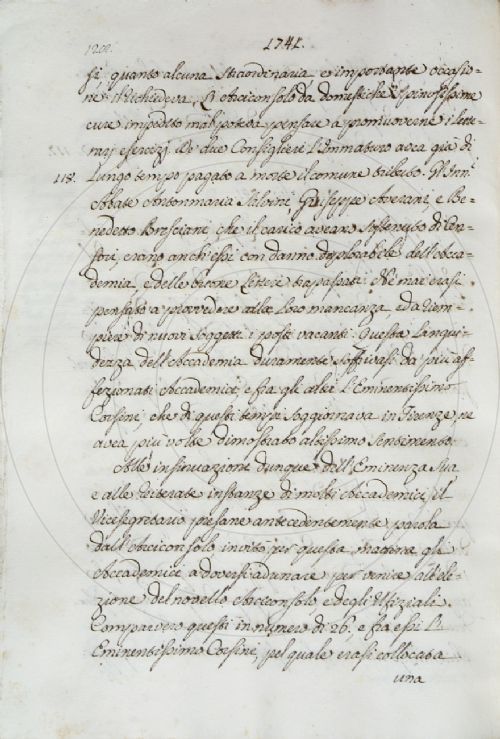 1741.
si, quanto alcuna straordinaria, e importante occasio-
ne il richiedeva. L'Arciconsolo da domestiche, e spinosissime
cure impedito mal poteva pensare a promuoverne i lette-
rarj esercizj. De' due Consiglieri l'Immaturo avea già di
118. Lungo tempo pagato a morte il comune tributo. Gl'Inn.
Abate Antonmaria Salvini, Giuseppe Averani, e Be-
nedetto Bresciani, che il carico aveano sostenuto di Cen-
sori, erano anch'essi con danno deplorabile dell'Acca-
demia, e delle buone Lettere trapassati. Nè mai erasi
pensato a provvedere alla loro mancanza, ed a riem-
piere di nuovi soggetti i posti vacanti. Questa Langui-
dezza dell'Accademia duramente soffrivasi da più af-
fezionati Accademici, e fra gli altri l'Eminentissimo
Corsini, che di questi tempi soggiornava in Firenze, ne
avea più volte dimostrato altissimo sentimento.
Alla insinuazione dunque dell'Eminenza Sua
e alle reiterate instanze di molti Accademici, il
Vicesegretario presane antecedentemente parola
dall'Arciconsolo invitò per questa mattina gli
Accademici a doversi adunare per venire all'ele-
zione del novello Arciconsolo, e degli Ufiziali.
Comparvero questi in numero di 26, e fra essi l'
Eminentissimo Corsini, pel quale erasi collocata
una